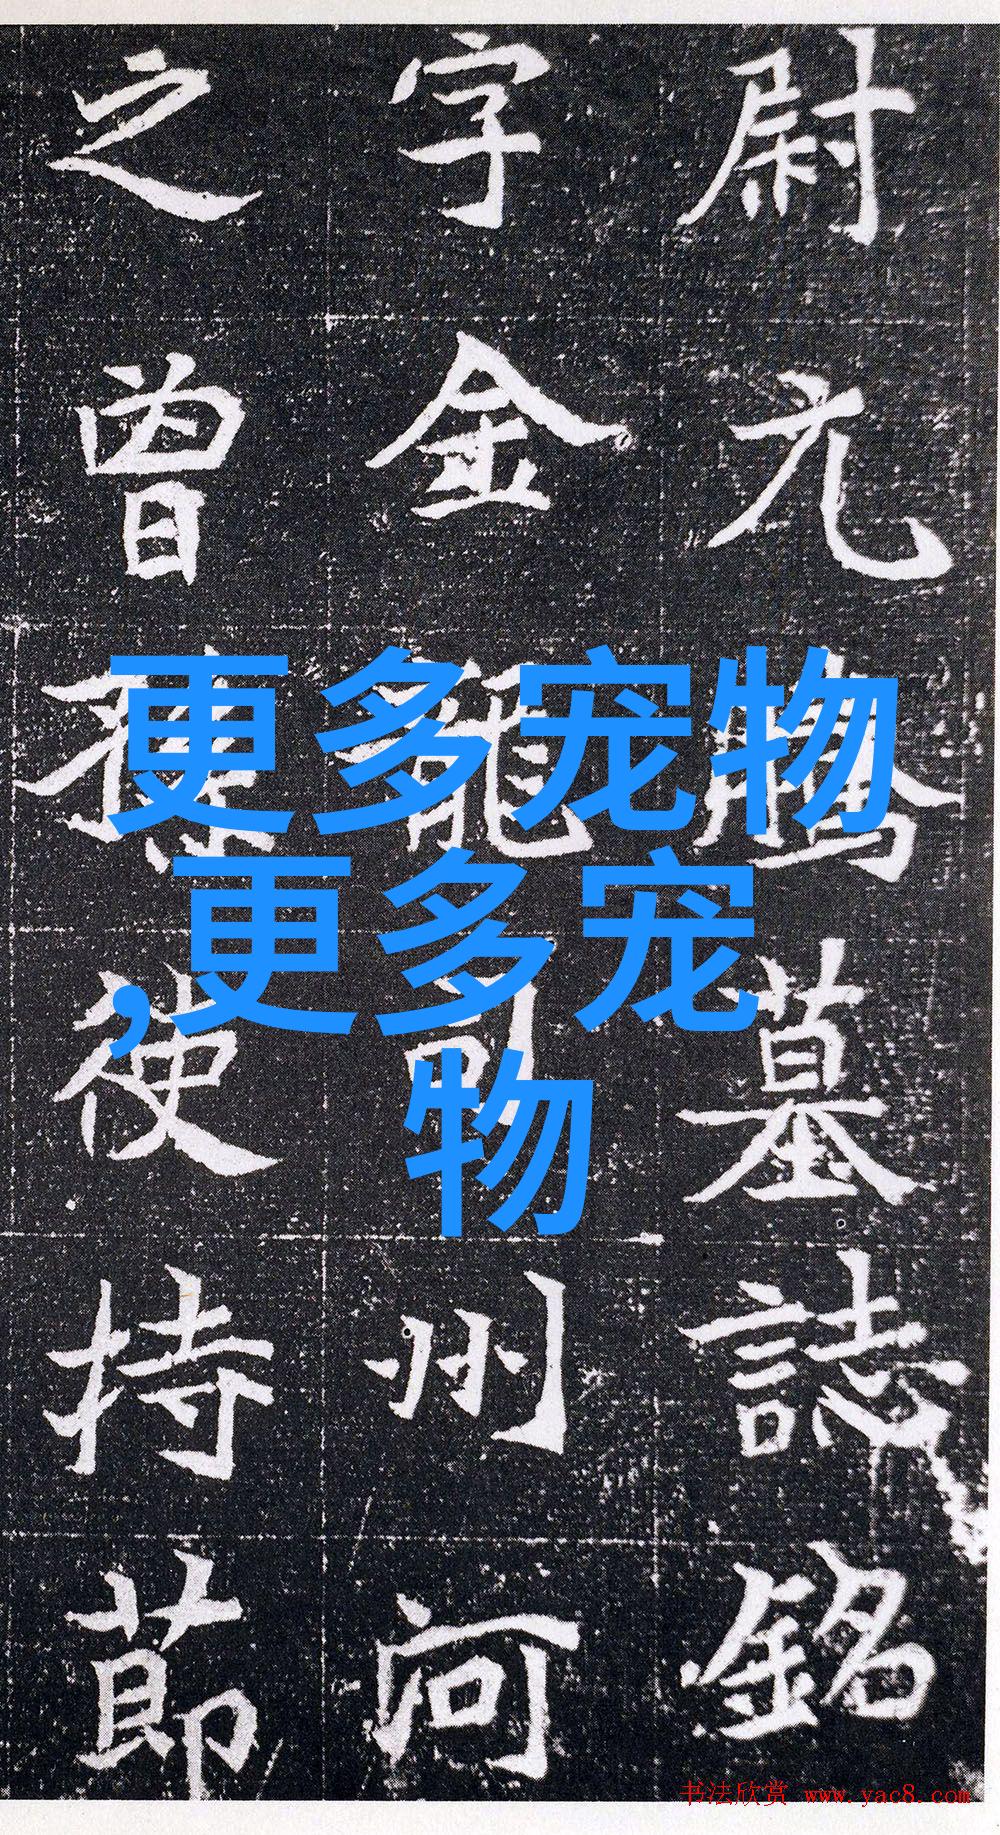 尉元騰墓誌銘
字金龍司州河
之曾孫使持莭
更多宠物
,更多宠
物
书法欣赏 www.yac8.com